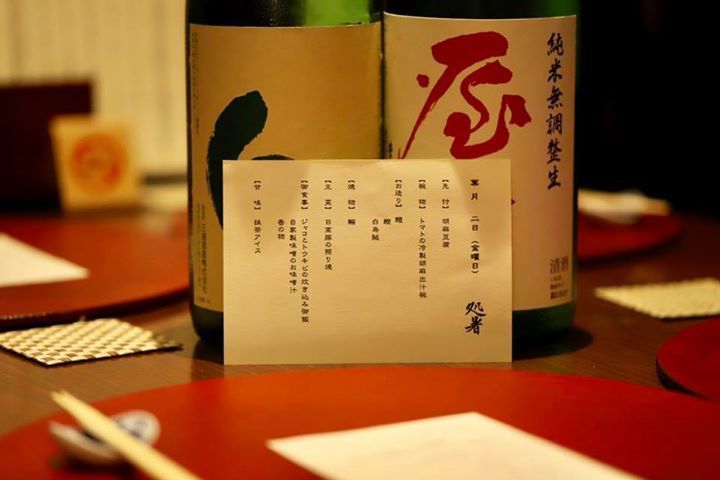 処暑
葉月 二日 (金曜日)
【先 付】 胡麻豆腐
【椀 物】 トマトの冷製胡麻出汁椀
【お造り】 鱧
鰹
白烏賊
【焼 物】 鰯
【主 菜】 日高豚の照り焼
【御食事】 ジャコとトウキビの炊き込み御飯
自家製味噌のお味噌汁
香の物
【甘 味】 抹茶アイス
純米無調整生
屋
清酒